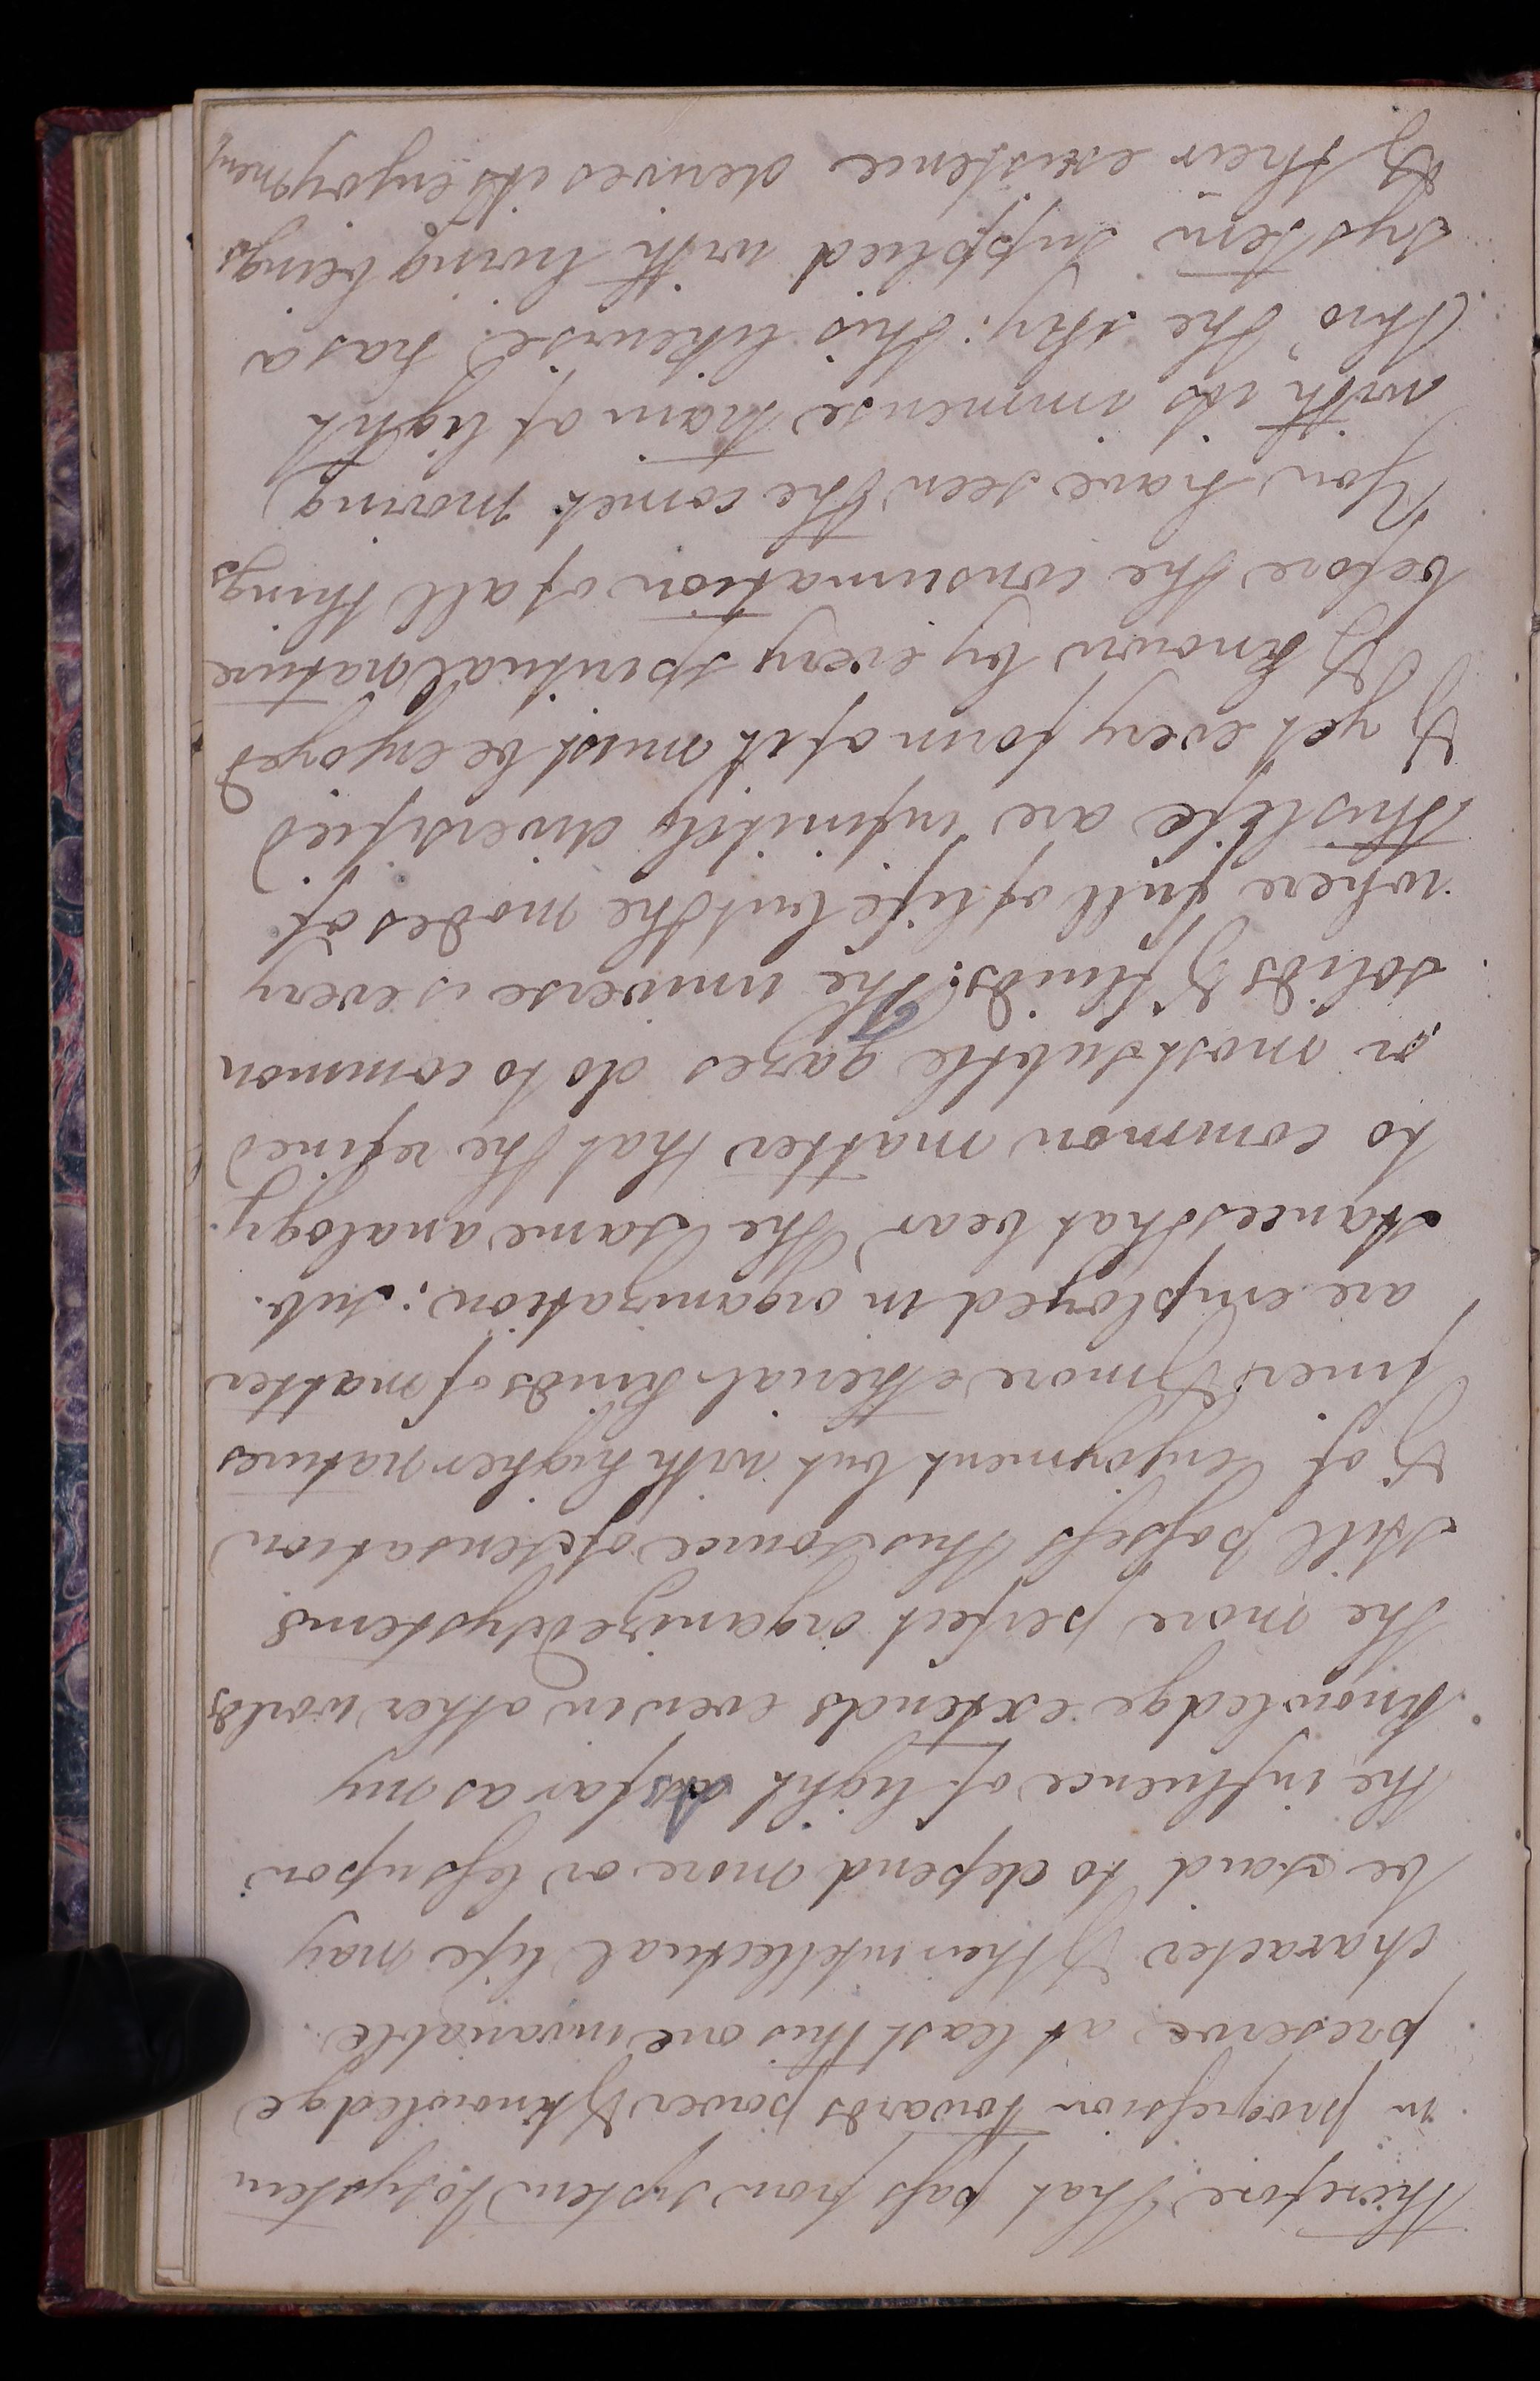 therefore that pass from system to system
in progression towards power & knowledge
preserve at least this one invariable
character & their intellectual life may
be said to depend more or less upon
the influence of light As far as my
knowledge extends even in other worlds
the more perfect organized systems
still possess this source of sensation
& of enjoyment but with higher natures
finer & more etherial kinds of matter
are employed in organization: sub-
stances that bear the same analogy
to common matter that the refined
or most subtle gazes do to common
solids & fluids. The universe is every
where full of life but the modes of
this life are infinitely diversified
& yet every form of it must be enjoyed
& known by every spiritual nature
before the consumation of all things
You have seen the comet moving
with its immense train of light
thro' the sky: this likewise has a
system supplied with living beings
& their existence derives its enjoyment